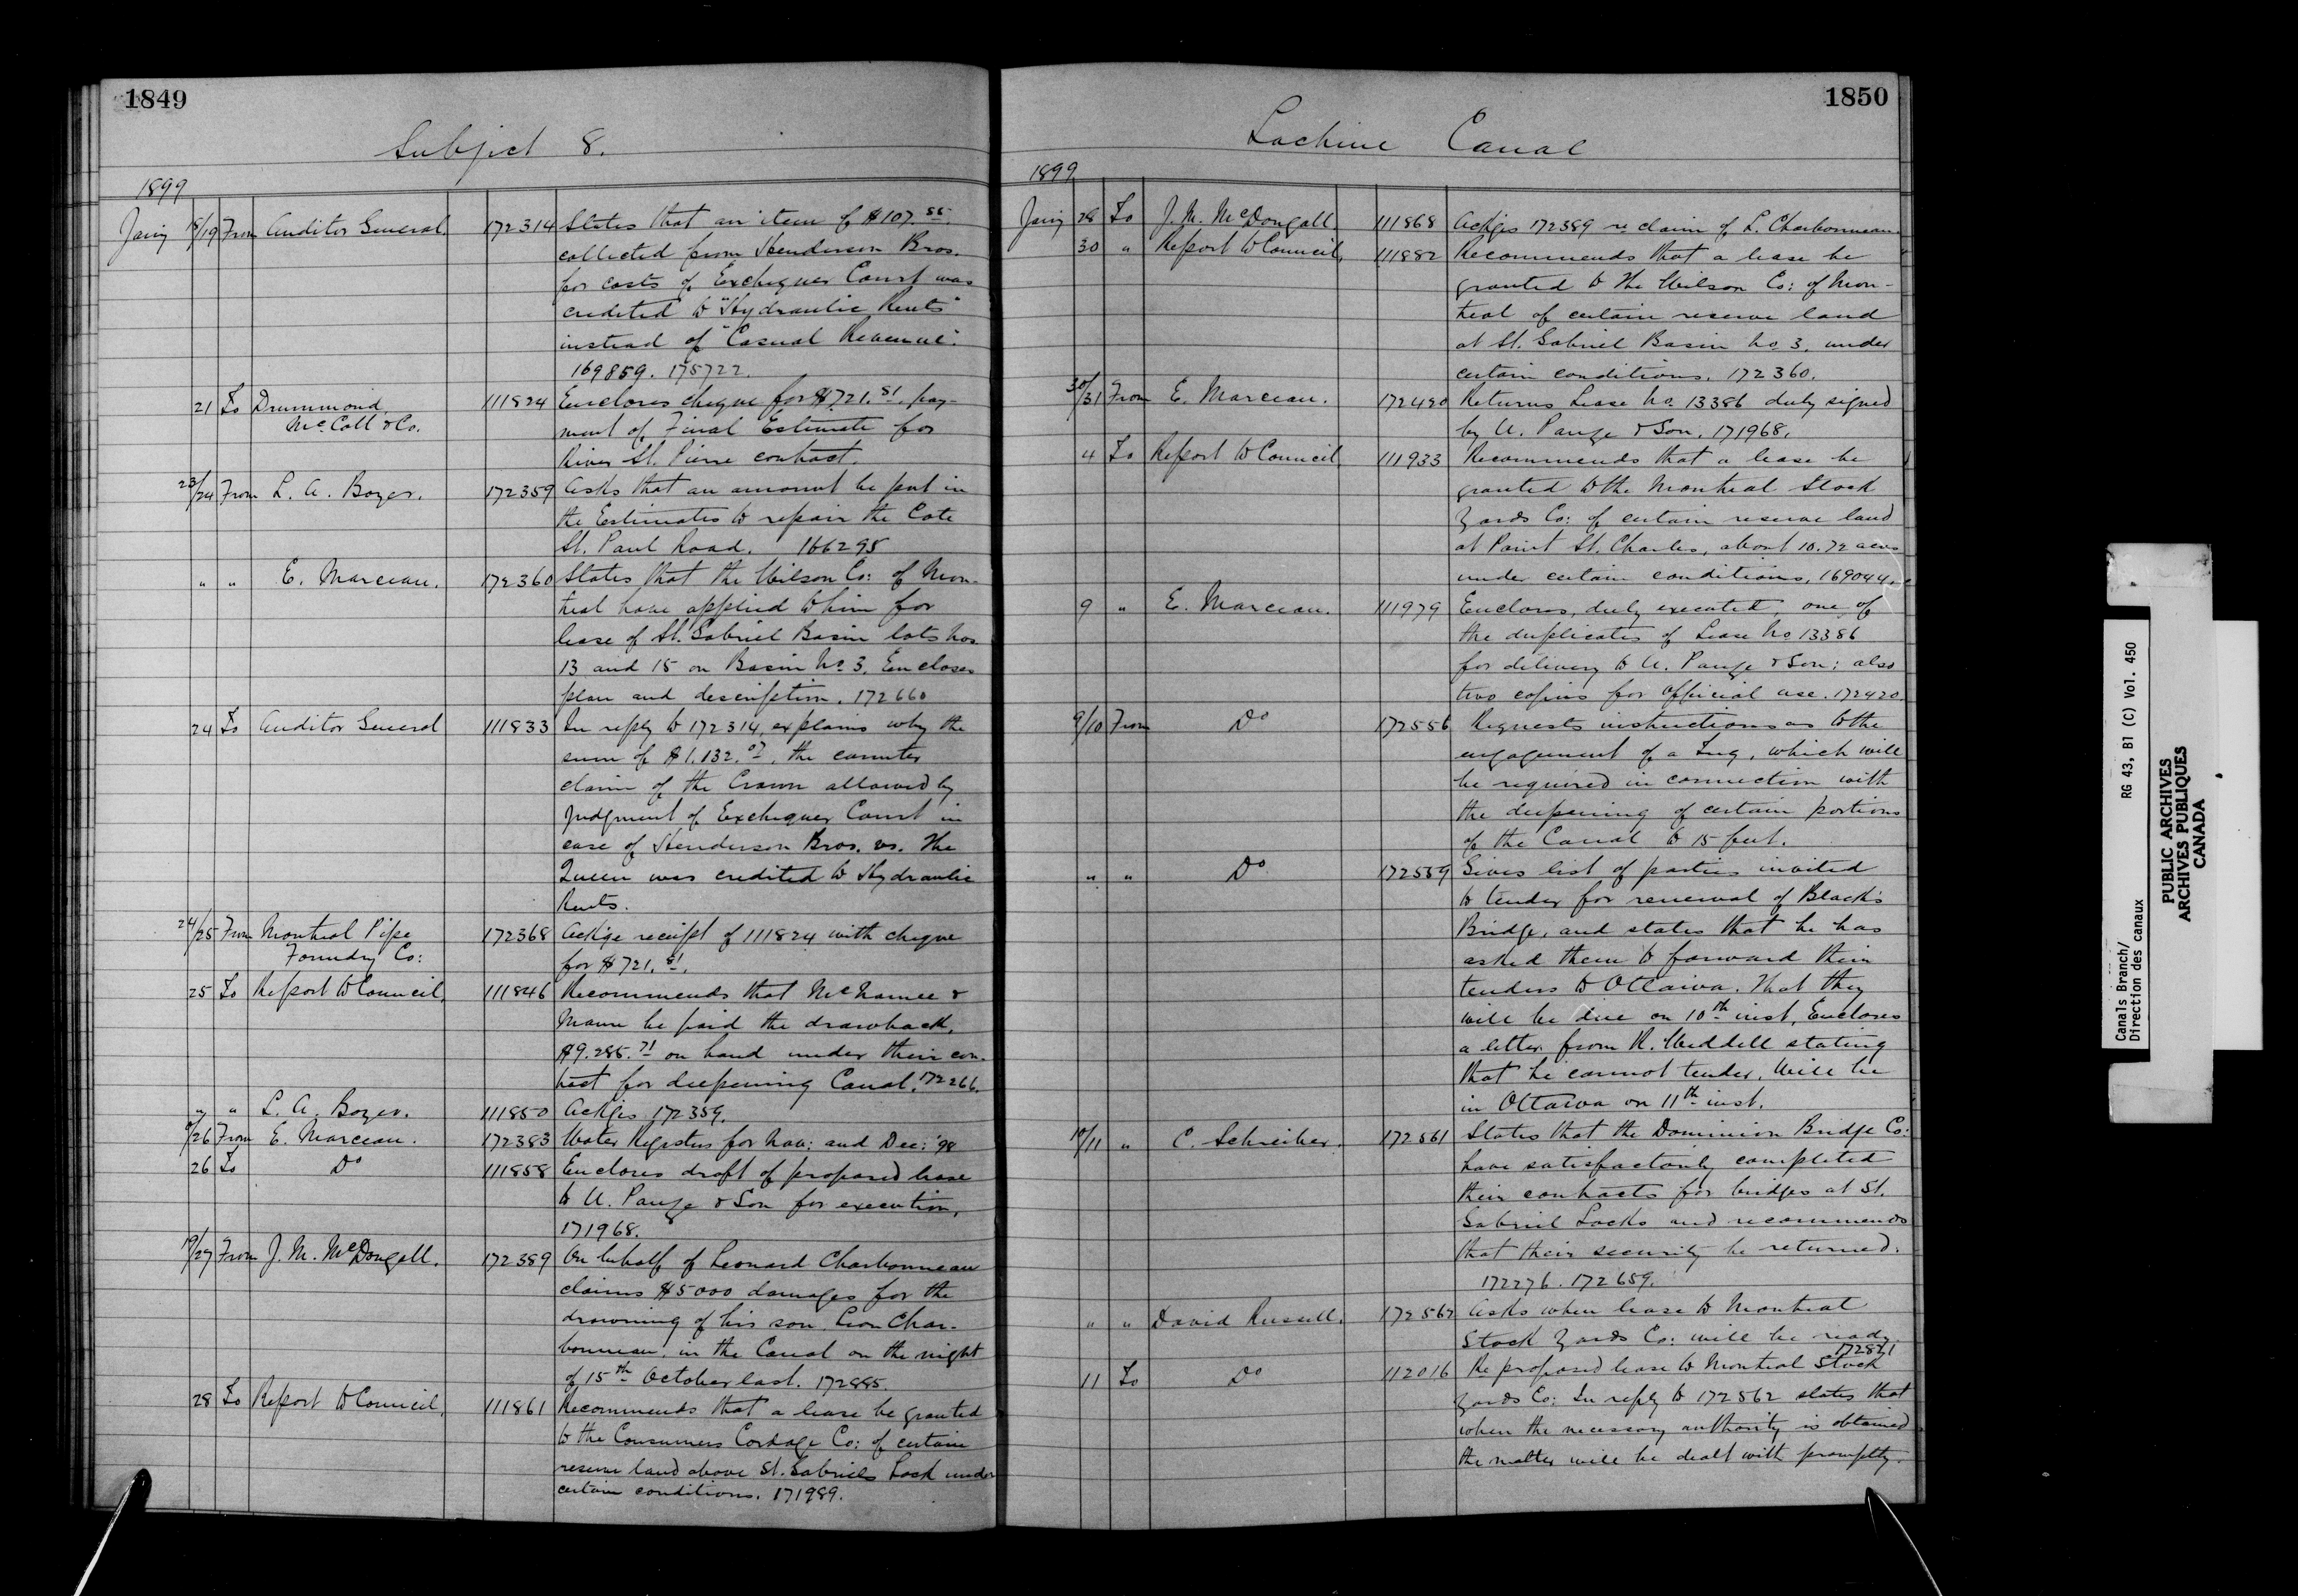 1849
Subject 8.
1899
Jany 18/19 From Auditor General. 172314 States that an item of $107.55
collected from Henderson Bros.
for costs of Exchequer Court was
credited to "Hydraulic Rents"
instead of "Casual Revenue".
169859. 175722.
21 To Drummond, 111824 Encloses cheque for $721.51. pay-
McCall & Co. ment of Final Estimate for
River St. Pierre contract.
23/24 From L. A. Boyer. 172359 Asks that an amount be put in
the Estimates to repair the Cote
St. Paul Road. 166295
" " E. Marceau. 172360 States that the Wilson Co: of Mon-
treal have applied to him for
lease of St. Gabriel Basin lots Nos
13 and 15 on Basin No 3. Encloses
plan and description. 172660
24 To Auditor General 111833 In reply to 172314, explains why the
sum of $1.132.07, the counter
claim of the Crown allowed by
judgment of Exchequer Court in
case of Henderson Bros. vs. The
Queen was credited to Hydraulic
Rents.
24/25 From Montreal Pipe 172368 Ackge receipt of 111824 with cheque
Foundry Co: for $721.51.
25 To Report to Council, 111846 Recommends that McNamee &
Mann be paid the drawback,
$9.285.71 on hand under their con-
tract for deepening Canal. 172266.
" " L. A. Boyer. 111850 Ackges 172359.
/26 From E. Marceau. 172383 Water Registers for Nov: and Dec: '98
26 To Do 111858 Encloses draft of proposed lease
to U. Pauze & Son for execution,
171968.
19/27 From J. M. McDougall. 172389 On behalf of Leonard Charbonneau
claims $5000 damages for the
drowning of his son, Leon Char-
bonneau, in the Canal on the night
of 15th October last. 172885.
28 To Report to Council, 111861 Recommends that a lease be granted
to the Consumers Cordage Co: of certain
reserve land above St. Gabriels Lock under
certain conditions. 171989.
1850
Lachine Canal
1899
Jany 28 To J. M. McDougall. 111868 Ackges 172389 re claim of L. Charbonneau.
30 " Report to Council, 111882 Recommends that a lease be
granted to the Wilson Co: of Mon-
treal of certain reserve land
at St. Gabriel Basin No 3. under
certain conditions. 172360.
30/31 From E. Marceau. 172420 Returns Lease No. 13386 duly signed
by U. Pauze & Son. 171968.
4 To Report to Council 111933 Recommends that a lease be
granted to the Montreal Stock
Yards Co: of certain reserve land
at Point St. Charles, about 10.72 acres
under certain conditions, 169044.
9 " E. Marceau. 111979 Encloses, duly executed, one of
the duplicates of Lease No 13386
for delivery to U. Pauze & Son; also
two copies for official use. 172420
9/10 From Do 172556 Requests instructions as to the
engagement of a Tug, which will
be required in connection with
the deepening of certain portions
of the Canal to 15 feet.
" " Do 172559 Gives list of parties invited
to tender for renewal of Black's
Bridge, and states that he has
asked them to forward their
tenders to Ottawa. That they
will be due on 10th inst. Encloses
a letter from R. Weddell stating
that he cannot tender. Will be
in Ottawa on 11th inst.
10/11 " C. Schreiber. 172561 States that the Dominion Bridge Co:
have satisfactorily completed
their contracts for bridges at St.
Gabriel Locks and recommends
that their security be returned.
172276. 172659.
" " David Russell. 172562 Asks when lease to Montreal
Stock Yards Co: will be ready.
11 To Do 112016 Re proposed lease to Montreal Stock
Yards Co: In reply to 172562 states that
when the necessary authority is obtained
the matter will be dealt with promptly.
Canals Branch/ RG 43, B1 (C) Vol. 450
Direction des canaux
PUBLIC ARCHIVES
ARCHIVES PUBLIQUES
CANADA